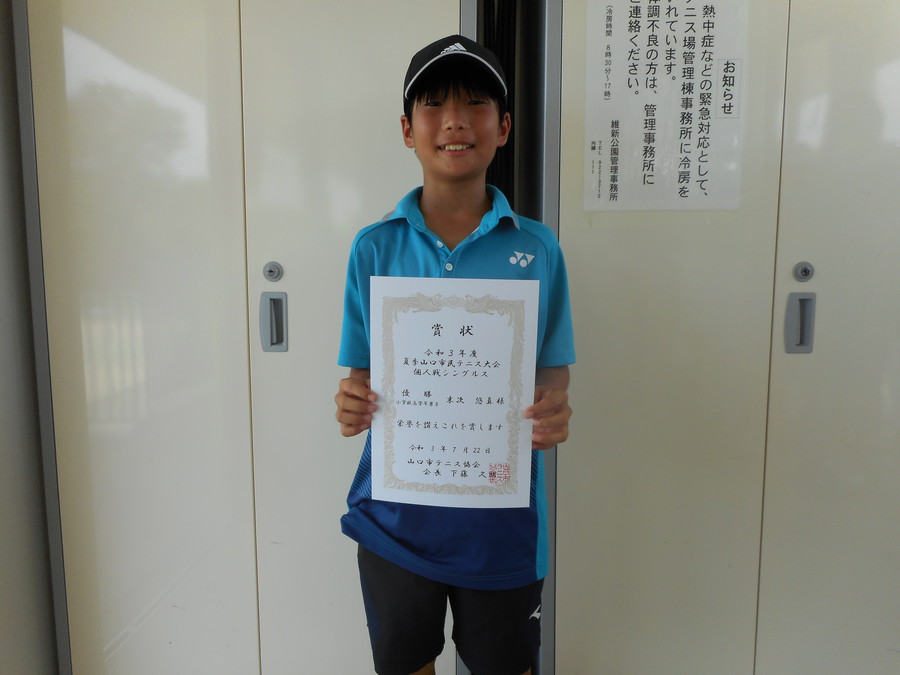 お知らせ
熱中症などの緊急対応として、
ニス場管理棟事務所に冷房を
れています。
体調不良の方は、管理事務所に
ご連絡ください。
(冷房時間 8時30分～17時)
維新公園管理事務所
adidas
賞状
令和3年度
夏季山口市民テニス大会
個人戦シングルス
優勝
小学校高学年男子
末次 悠真 様
栄誉を讃えこれを賞します
令和 3 年 7 月 22 日
山口市テニス協会
会長 下藤 文